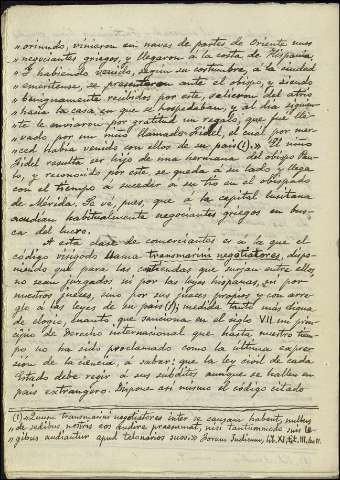 » oriundo, vinieron en naves de partes de Oriente unos
» negociantes griegos, y llegaron á la costa de Hispania.
» Y habiendo venido, segun su costumbre, á la ciudad
» emeritense, se presentaron ante el obispo, y siendo
» benignamente recibidos por este, salieron del atrio
» hasta la casa en que se hospedaban, y al dia siguien-
te le enviaron por gratitud un regalo, que fué lle-
vado por un niño llamado Fidel, el cual por mer-
ced habia venido con ellos de su pais (1).» El niño
Fidel resulta ser hijo de una hermana del obispo Pau-
lo, y reconocido por este, se queda á su lado y llega
con el tiempo a suceder á su tio en el obispado
de Mérida. Se vé, pues, que á la capital lusitana
acudian habitualmente negociantes griegos en bus-
ca del lucro.
A esta clase de comerciantes es á la que el
código visigodo llama transmarini negotiatores, dispo-
niendo que para las contiendas que surjan entre ellos,
no sean juzgados ni por las leyes hispanas, ni por
nuestros jueces, sino por sus jueces propios y con arre-
glo á las leyes de su pais (1); medida tanto más digna
de elogio, cuanto que sanciona en el siglo VII un prin-
cipio de Derecho internacional que hasta nuestro tiem-
po no ha sido proclamado como la última expre-
sión de la ciencia, á saber: que la ley civil de cada
Estado debe regir á sus súbditos aunque se hallen en
pais extrangero. Dispone asi mismo el código citado
(1) «Quum transmarini negotiatores inter se causam habent, nullus
» de sedibus nostris eos audire praesumat, nisi tantummodo suis le-
gibus audiantur apud telonarios suos.» Forum Judicum, lib. XI, tit. III,